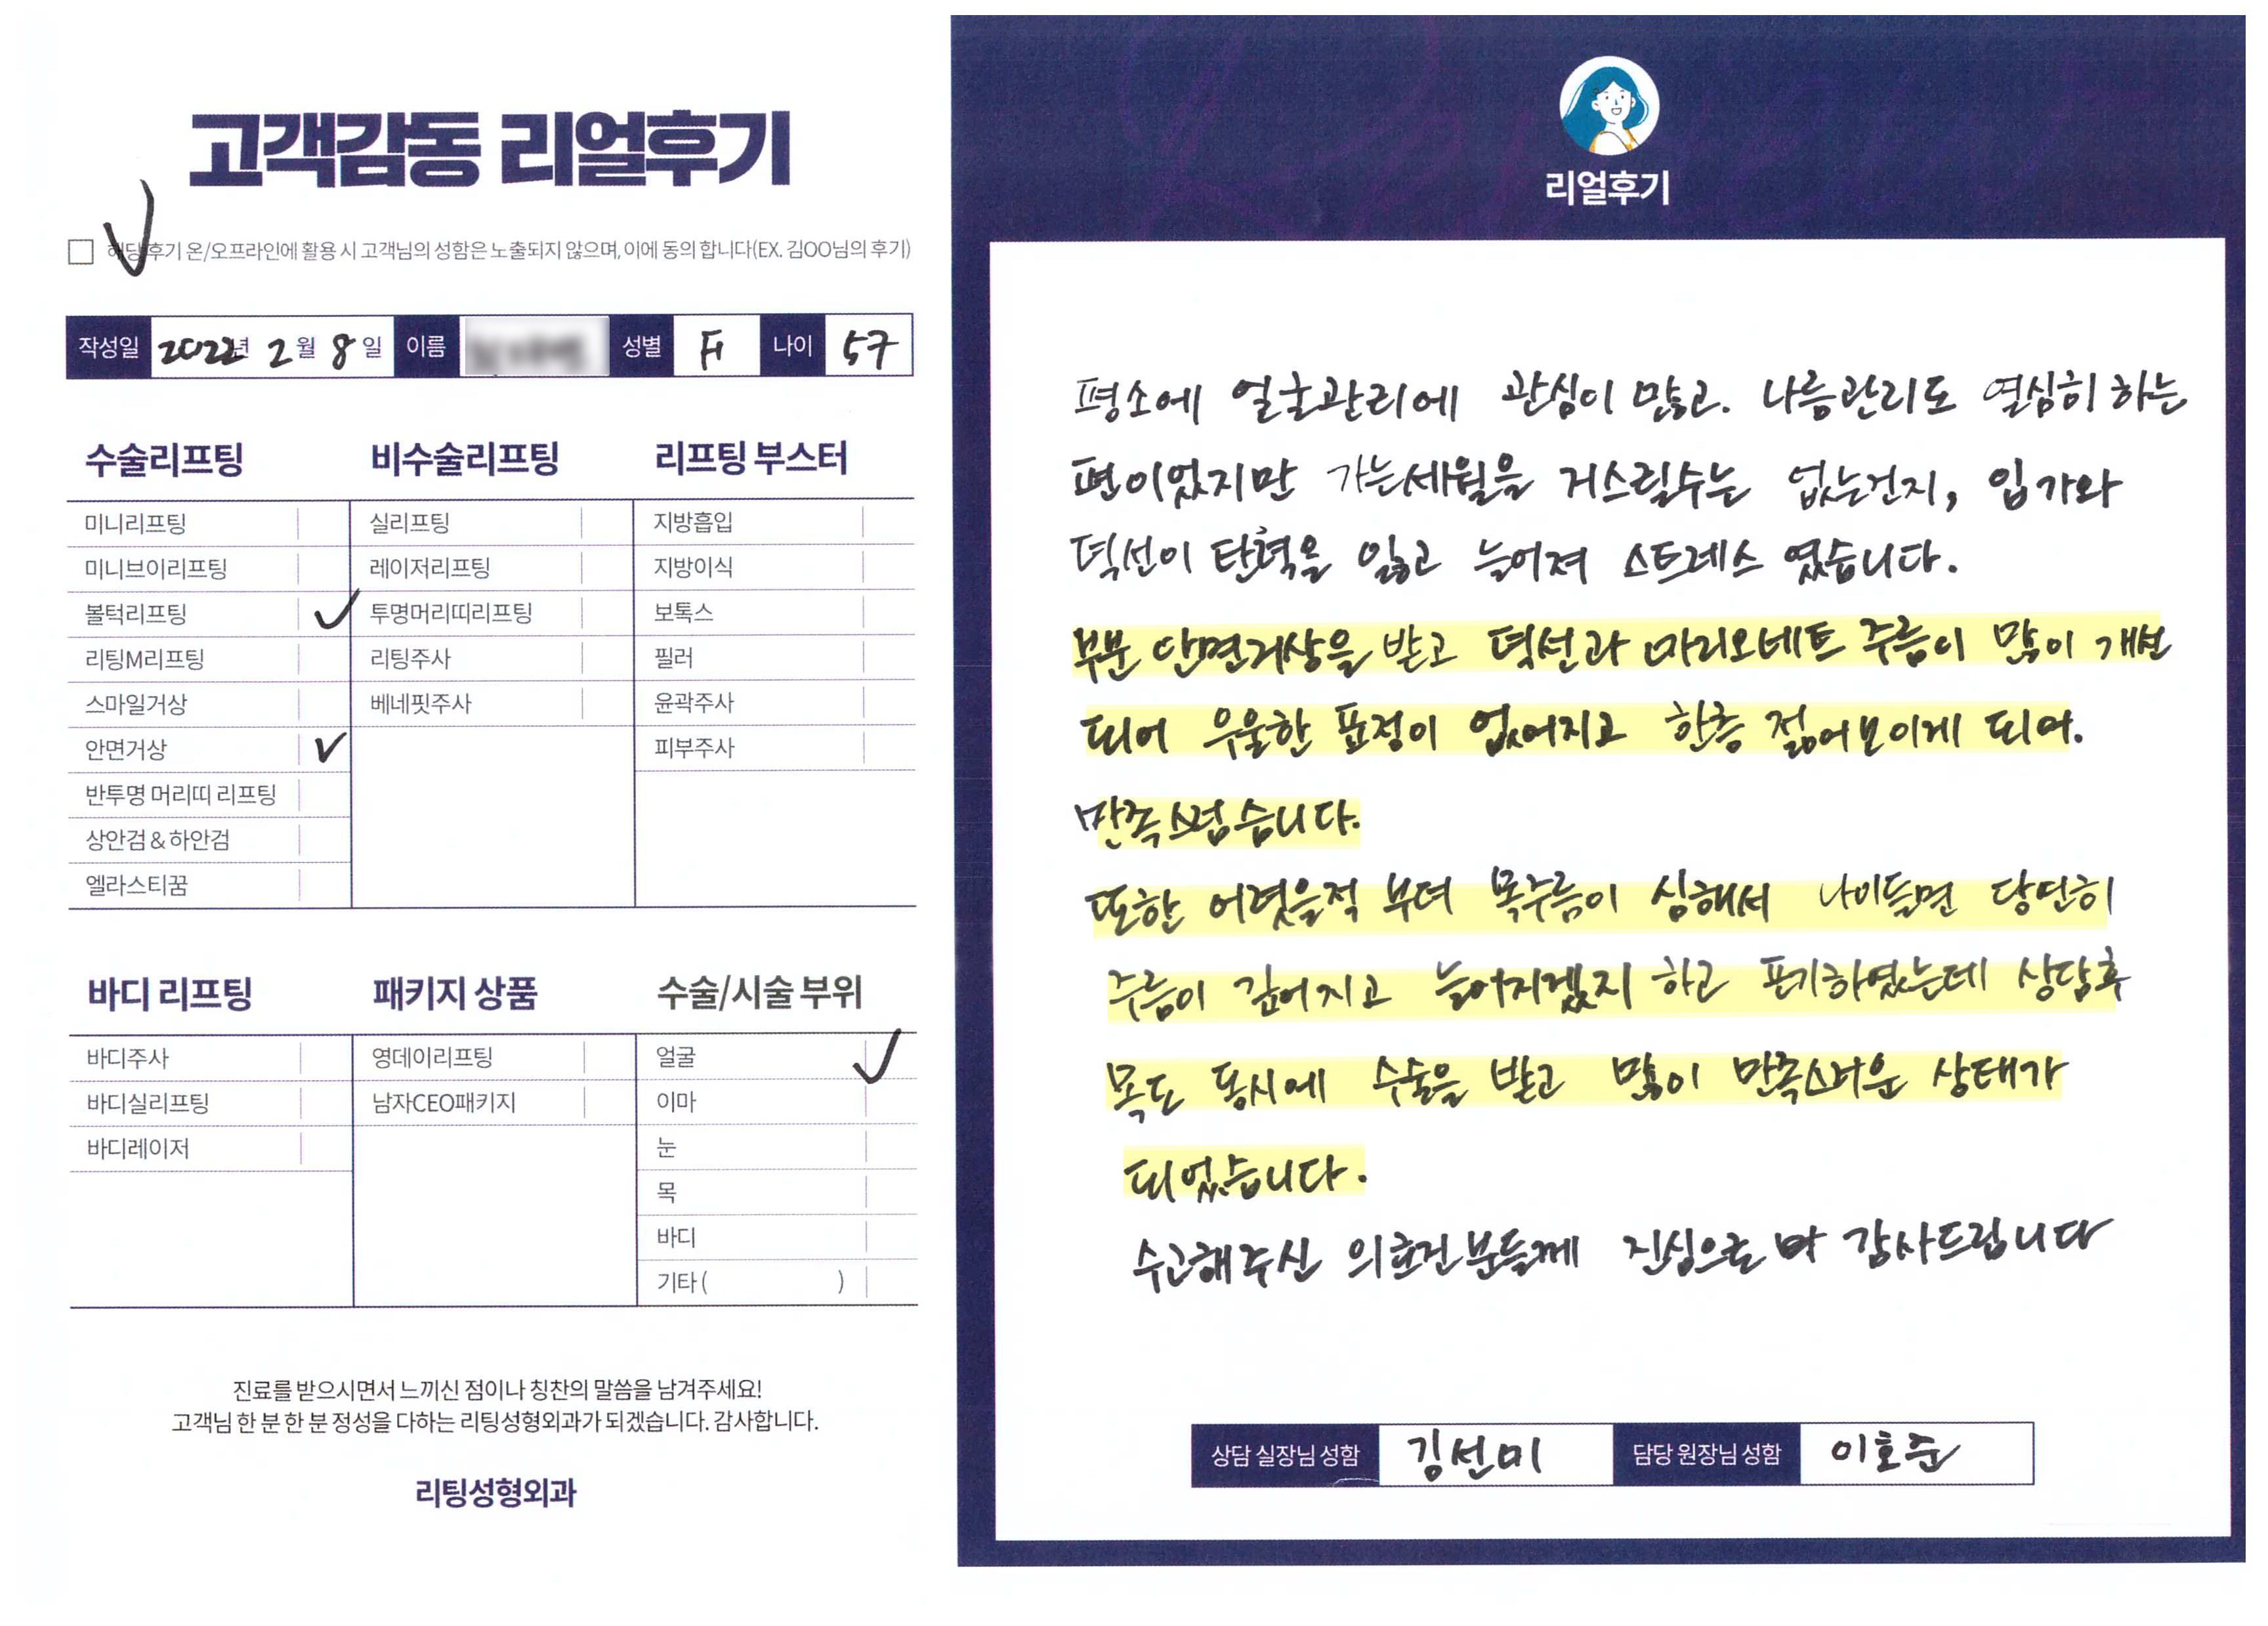 고객감동 리얼후기
해당 후기 온/오프라인에 활용 시 고객님의 성함은 노출되지 않으며, 이에 동의 합니다(EX. 김OO님의 후기)
작성일 2022년 2월 8일 이름 성별 F 나이 57
수술리프팅
미니리프팅
미니브이리프팅
볼턱리프팅
리팅M리프팅
스마일거상
안면거상
반투명 머리띠 리프팅
상안검 & 하안검
엘라스티꿈
비수술리프팅
실리프팅
레이저리프팅
투명머리띠리프팅
리팅주사
베네핏주사
리프팅 부스터
지방흡입
지방이식
보톡스
필러
윤곽주사
피부주사
바디 리프팅
바디주사
바디실리프팅
바디레이저
패키지 상품
영데이리프팅
남자CEO패키지
수술/시술 부위
얼굴
이마
눈
목
바디
기타 ( )
진료를 받으시면서 느끼신 점이나 칭찬의 말씀을 남겨주세요!
고객님 한 분 한 분 정성을 다하는 리팅성형외과가 되겠습니다. 감사합니다.
리팅성형외과
리얼후기
평소에 얼굴관리에 관심이 많고. 나름관리도 열심히 하는
편이었지만 가는세월을 거스릴수는 없는건지, 입가와
턱선이 탄력을 잃고 늘어져 스트레스 였습니다.
부분 안면거상을 받고 턱선과 마리오네트 주름이 많이 개선
되어 우울한 표정이 없어지고 한층 젊어보이게 되어.
만족스럽습니다.
또한 어렸을적 부터 목주름이 심해서 나이들면 당연히
주름이 깊어지고 늘어지겠지 하고 포기하였는데 상담후
목도 동시에 수술을 받고 많이 만족스러운 상태가
되었습니다.
수고해주신 의료진분들께 진심으로 감사드립니다
상담 실장님 성함 김선미 담당 원장님 성함 이호준